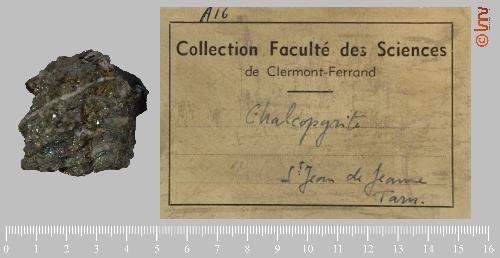 A16
Collection Faculté des Sciences
de Clermont-Ferrand
Chalcopyrite
St Jean de Jeanne
Tarn.
0 1 2 3 4 5 6 7 8 9 10 11 12 13 14 15 16